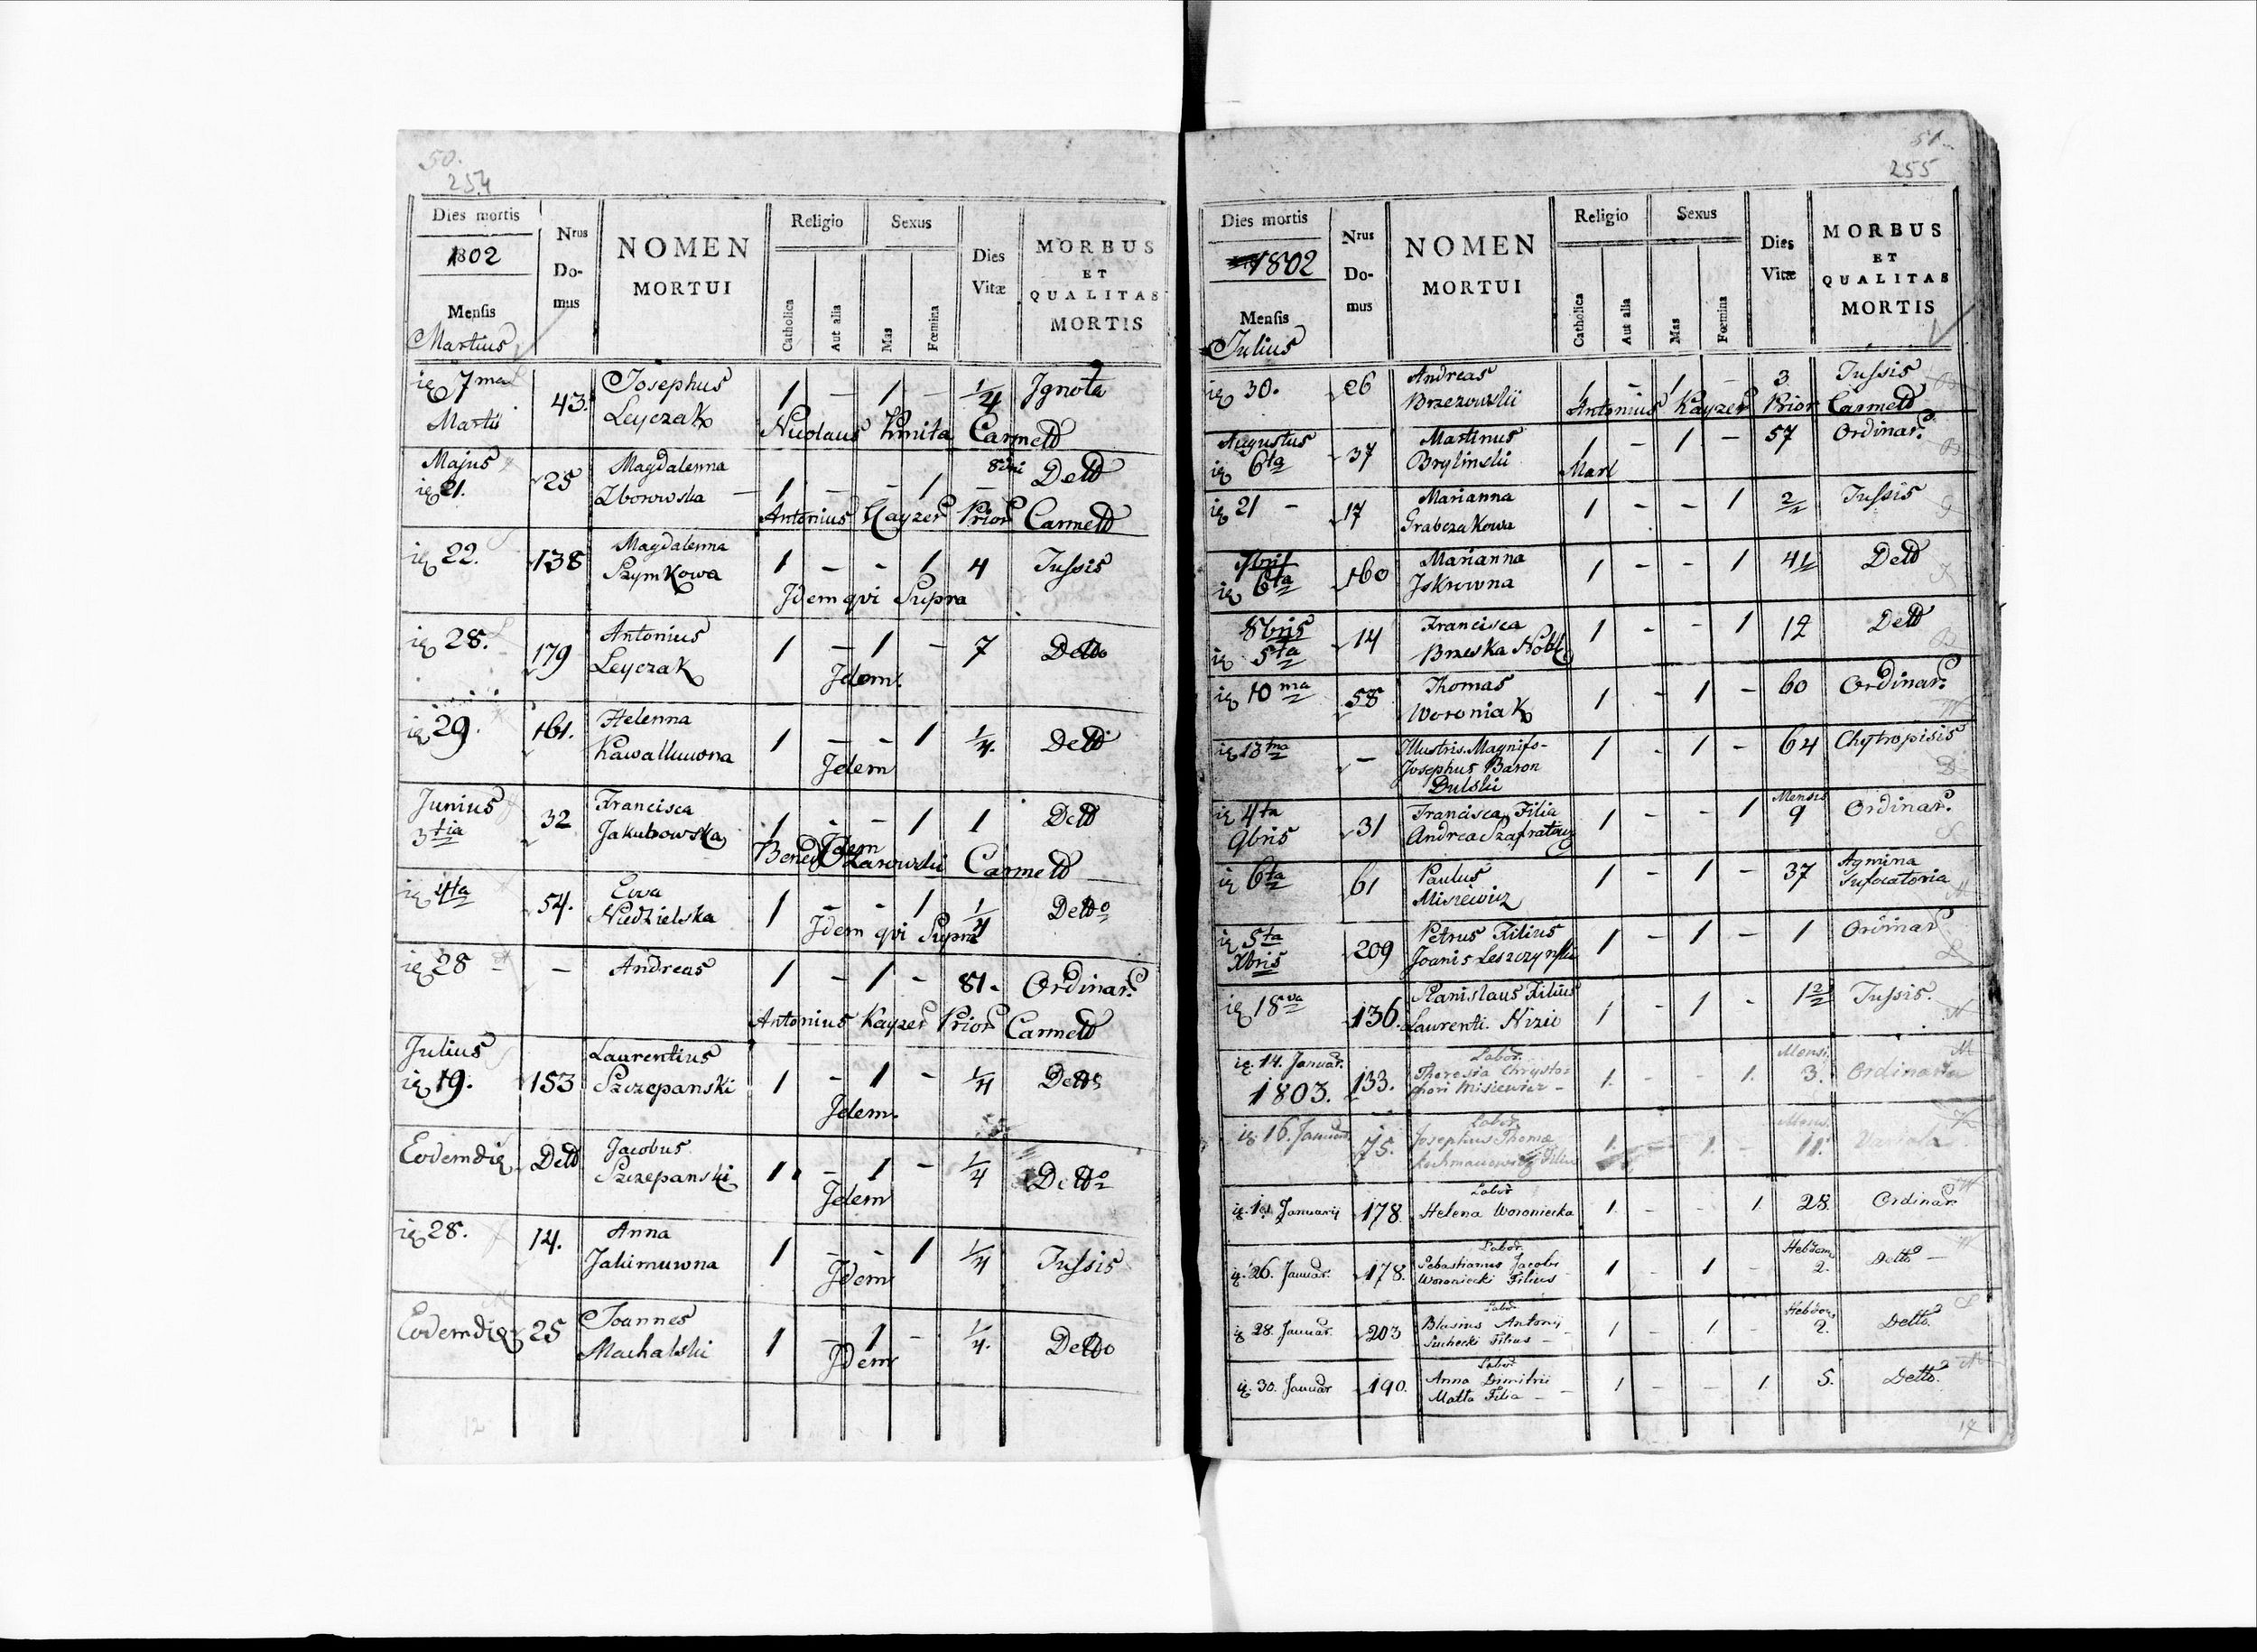 50.
254
Dies mortis
1802
Mensis
Martius
Nrus
Do-
mus
NOMEN
MORTUI
Religio
Catholica
Aut alia
Sexus
Mas
Fœmina
Dies
Vitæ
MORBUS
ET
QUALITAS
MORTIS
7ma Martii 43. Josephus Leyczak 1 – 1 – 1/4 Ignota
Nicolaus Kmita Carmelt
Majus 21. 25 Magdalenna Zborowska – 1 – – 1 – Dett
Antonius Kayzer Prior Carmelt
22. 138 Magdalenna Szymkowa 1 – – 1 4 Tussis
Idem qvi Supra
28. 179 Antonius Leyczak 1 – 1 – 7 Detto
Idem.
29. 161. Helenna 1 – – 1 1/4. Dett
Idem
Junius 3tia 32 Francisca Jakubowska 1 – – 1 1 Dett
Idem
Carmelt
4ta 54. Ewa Niedzielska 1 – – 1 1/4 Detto
Idem qvi Supra
28 – – Andreas 1 – 1 – 81. Ordinar.
Antonius Kayzer Prior Carmelt
Julius 19. 153 Laurentius Szczepanski 1 – 1 – 1/4 Detto
Idem.
Eodem die Dett Jacobus Szczepanski 1. – 1 – 1/4 Detto
Idem
28. 14. Anna 1 – – 1 1/4 Tussis
Idem
Eodem die 25 Joannes Machalski 1 – 1 – 1/4. Detto
Idem
12
51
255
Dies mortis
1802
Mensis
Julius
Nrus
Do-
mus
NOMEN
MORTUI
Religio
Catholica
Aut alia
Sexus
Mas
Fœmina
Dies
Vitæ
MORBUS
ET
QUALITAS
MORTIS
30. 26 Andreas Brzezowski 1 – 1 – 3 Tussis
Antonius Kayzer Prior Carmelt
Augustus 6ta 37 Martinus Brylinski 1 – 1 – 57 Ordinar.
21 – 17 Marianna Grabczakowa 1 – – 1 Tussis
7bris 6ta 160 Marianna Iskrowna 1 – – 1 Dett
8bris 5ta 14 Francisca Brzeska 1 – – 1 12 Dett
10ma 58 Thomas Woroniak 1 – 1 – 60 Ordinar.
13tia – Illustris. Magnifo- Josephus Baron Dulski 1 – 1 – 64 Chytropisis
4ta 9bris 31 Francisca Filia Andrea 1 – – 1 Mensis 9 Ordinar.
6ta 61 Paulus Misiewicz 1 – 1 – 37 Agmina Sufocatoria
5ta Xbris 209 Petrus Filius Joanis Leszczynski 1 – 1 – 1 Ordinar
18va 136. Stanislaus Filius Laurenti. Nizio 1 – 1 – Tussis.
14. Januar. 1803. 133. Labor. Theresia Chrysto- phori Misiewicz – 1. – – 1. Mensi. 3. Ordinaria
16. Januar. 75. Labor. Josephus Thoma 1. – 1. – Mens. 11.
Januarij 178. Labor Helena Woroniecka 1. – – 1. 28. Ordinar.
26. Januar. 178. Labor. Sebastianus Jacobi Woroniecki Filius – 1 – 1 – Hebdom. 2. Detto –
28. Januar. 203 Labor. Blasius Antonij Suchecki Filius – 1 – 1 – Hebdom. 2. Detto.
30. Januar 190. Labor Anna Dimitrii Matta Filia – – 1 – – 1. 5. Detto.
17